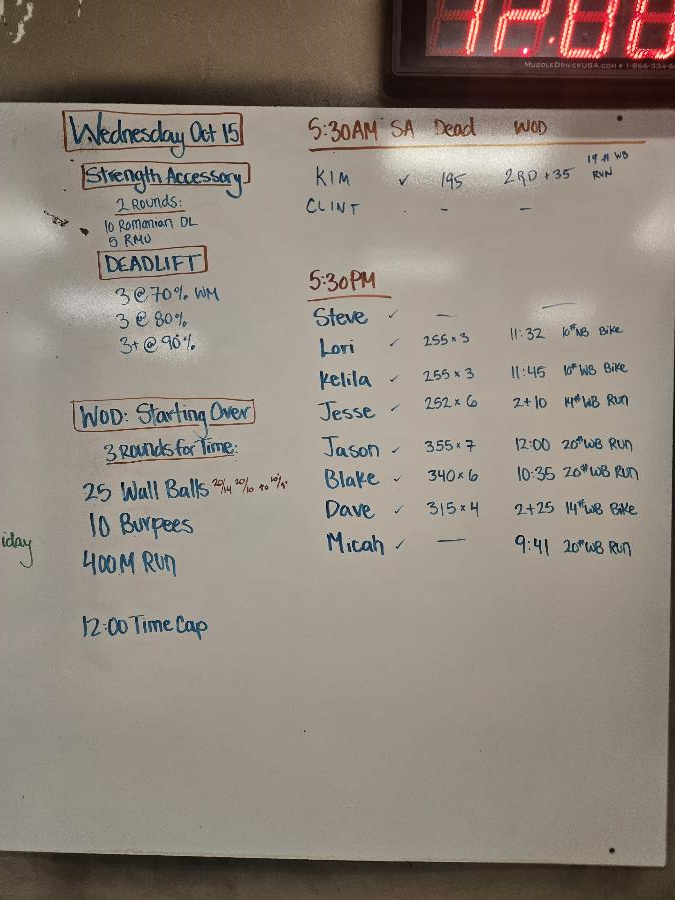 12:00
MUSCLEDRIVERUSA.COM • 1-866-
Wednesday Oct 15
Strength Accessory
2 Rounds:
10 Romanian DL
5 RMU
DEADLIFT
3 @ 70% WM
3 @ 80%
3+ @ 90%
WOD: Starting Over
3 Rounds for Time:
25 Wall Balls 20/14 20/10
10 Burpees
400M Run
12:00 Time Cap
iday
5:30AM SA Dead WOD
KIM ✓ 195 2RD + 35 14# WB RUN
CLINT - - -
5:30PM
Steve ✓ — —
Lori ✓ 255 x 3 11:32 10# WB Bike
Kelila ✓ 255 x 3 11:45 10# WB Bike
Jesse ✓ 252 x 6 2+10 14# WB Run
Jason ✓ 355 x 7 12:00 20# WB Run
Blake ✓ 340 x 6 10:35 20# WB Run
Dave ✓ 315 x 4 2+25 14# WB Bike
Micah ✓ — 9:41 20# WB Run